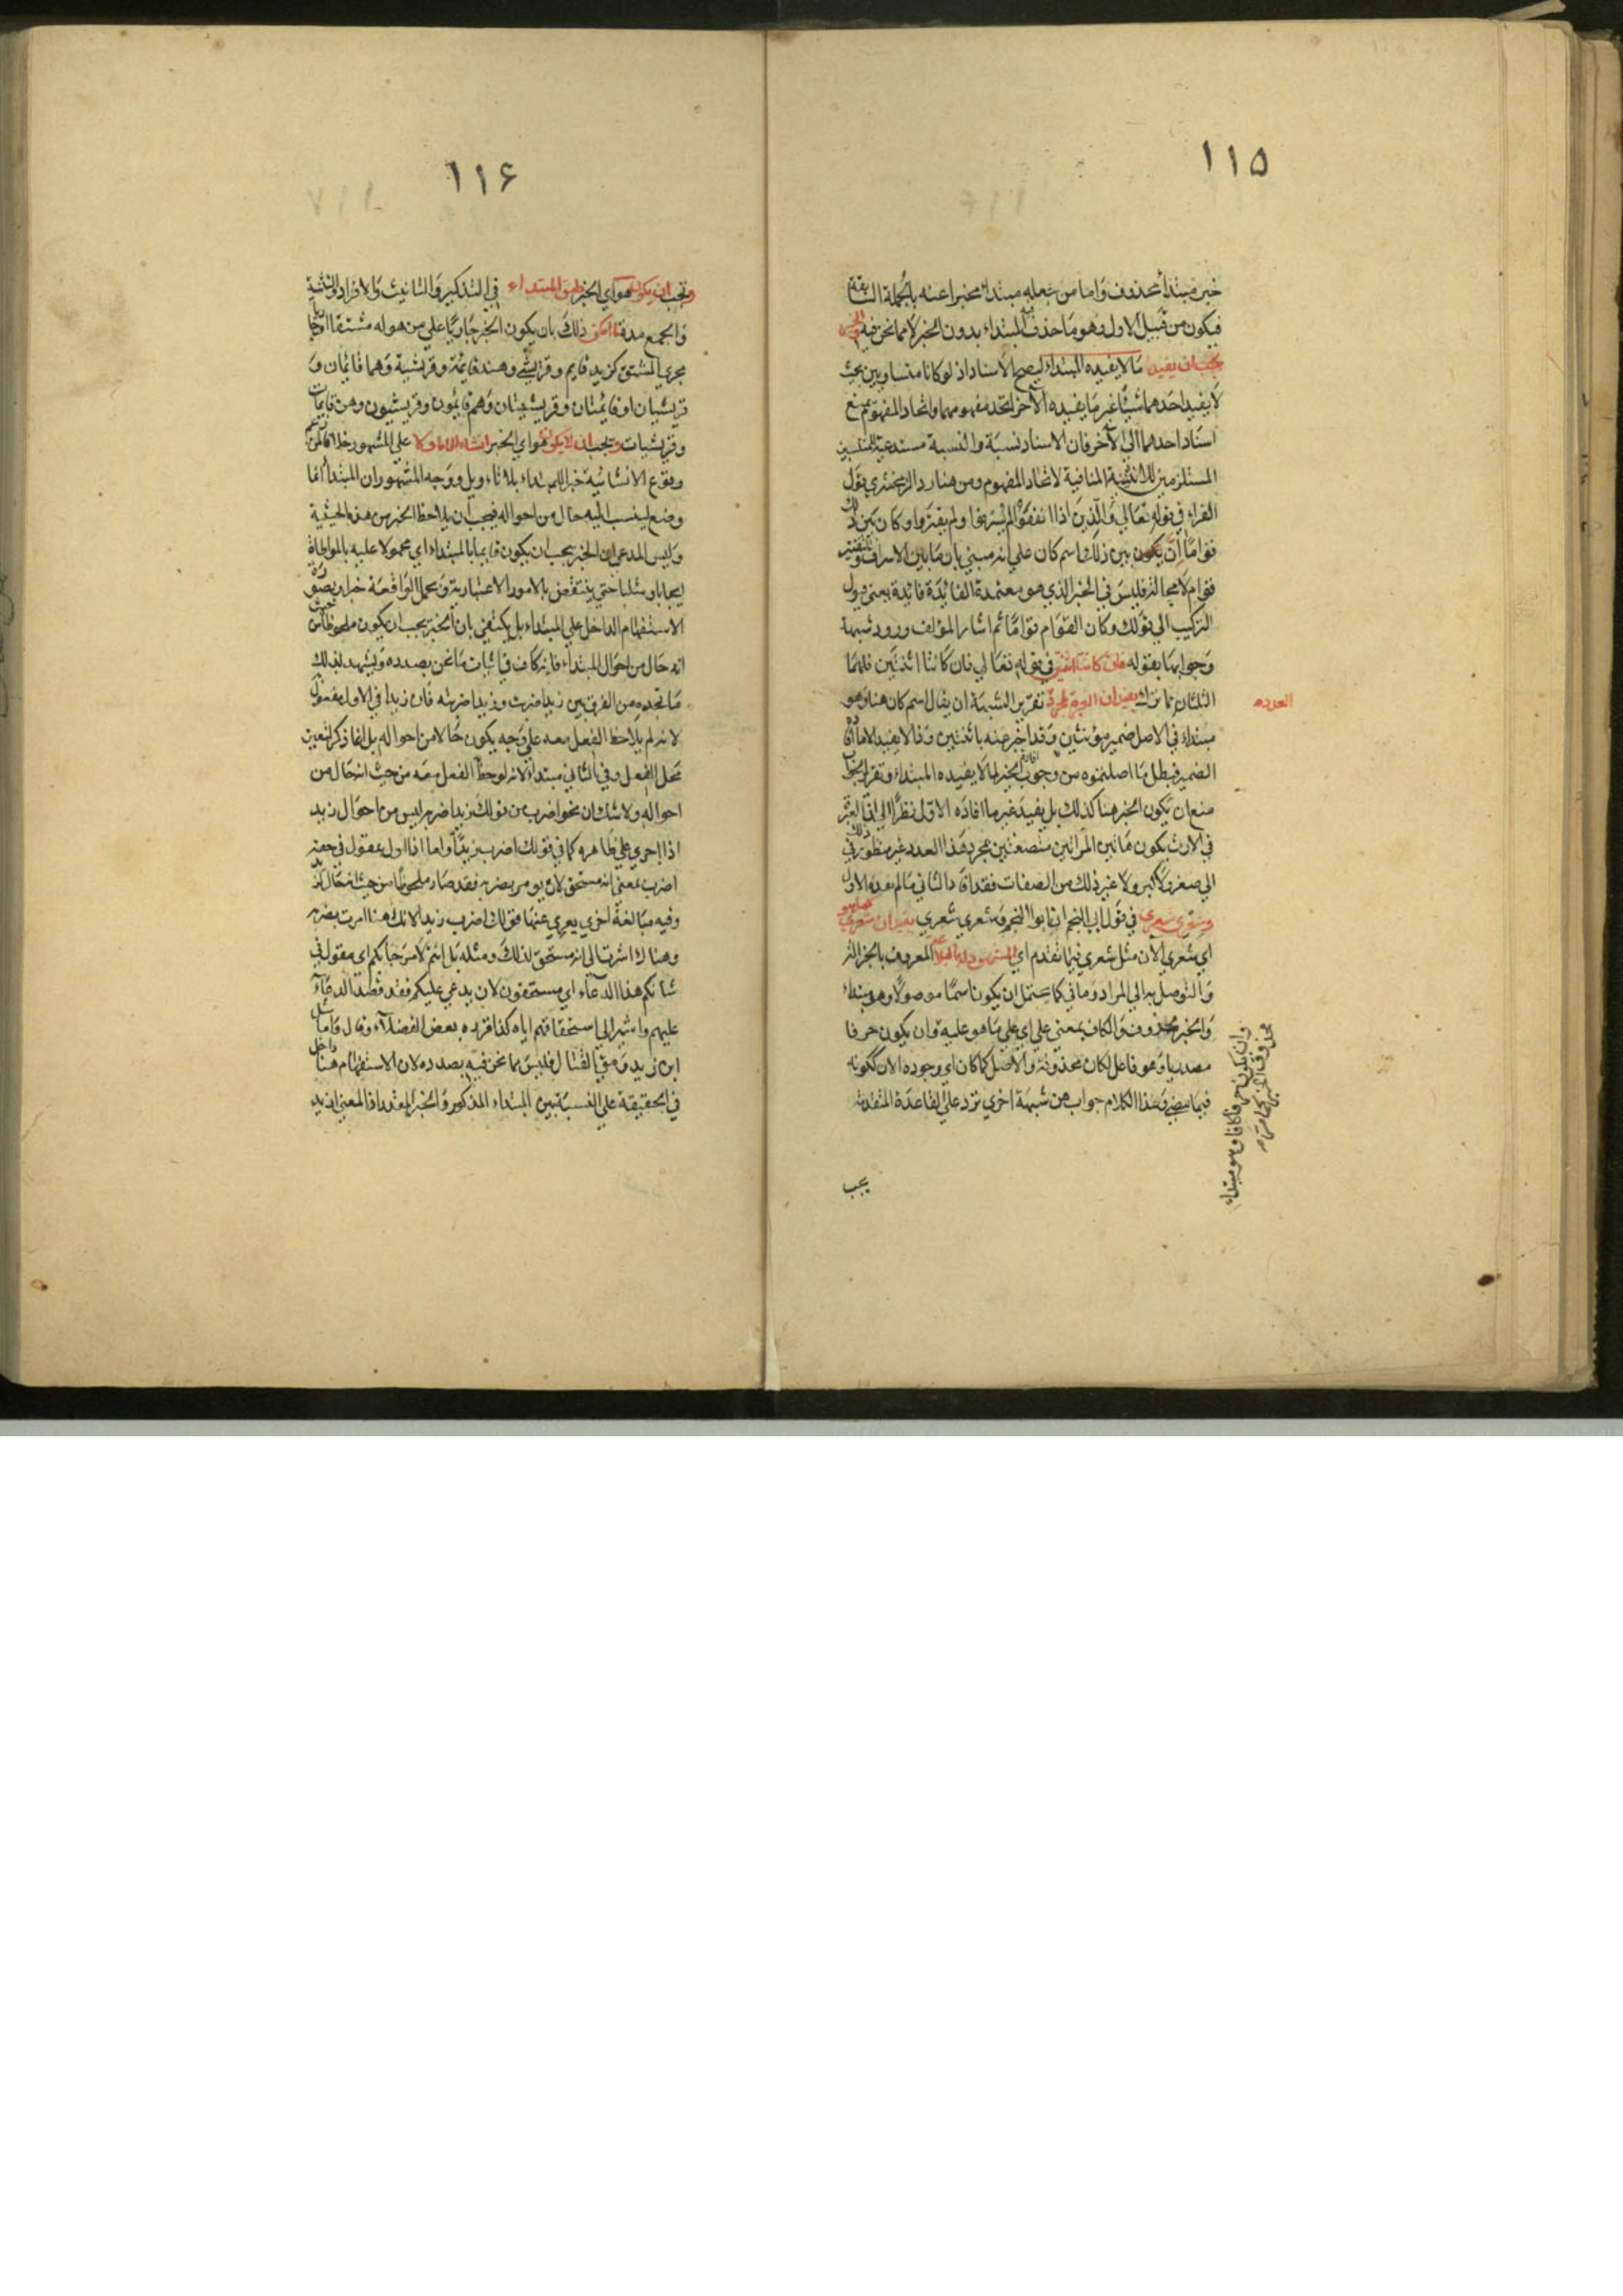 ١١٥
خبر مبتدأ محذوف واما من جعله مبتداء مخبرا عنه بالجملة السابقة
فيكون من قبيل الاول وهو ما حذف فيه المبتداء بدون الخبر لا مما نحن فيه والخبر
يجب ان يفيد ما لا يفيده المبتداء ليصح الاسناد اذ لو كانا متساويين بحيث
لا يفيد احدهما شيئا غير ما يفيده الآخر لاتحد مفهومهما واتحاد المفهوم يمنع
اسناد احدهما الى الآخر فان الاسناد نسبة والنسبة مستدعية للمنتسبين
المستلزمين للاثنينية المنافية لاتحاد المفهوم ومن هنا رد الزمخشري قول
الفراء في قوله تعالي والذين اذا انفقوا لم يسرفوا ولم يقتروا وكان بين ذلك
قواما ان يكون بين ذلك اسم كان علي انه مبني بان ما بين الاسراف والتقتير
قوام لا محالة فليس في الخبر الذي هو معتمد الفائدة فائدة بمعني يول
التركيب الي قولك وكان القوام قواما ثم اشار المؤلف ورود شبهة
وجوابها بقوله فان كانتا اثنتين في قوله تعالي فان كانتا اثنتين فلهما
الثلثان مما ترك يفيد ان العبرة لمجرد تقرير الشبهة ان يقال اسم كان هنا وهو
العدد
مبتداء في الاصل ضمير مؤنثين وقد اخبر عنه باثنتين وذا لا يفيد الا ما افاده
الضمير فبطل ما اصلتموه من وجوب افادة الخبر لما لا يفيده المبتداء وتقرير الجواب
منع ان يكون الخبر هنا كذلك بل يفيد غير ما افاده الاول نظرا الي ان العبرة
في الارث يكون هاتين المرأتين متصفتين بمجرد هذا العدد غير منظور في ذلك
الي صغر ولا كبر ولا غير ذلك من الصفات فقد افاد الثاني ما لم يفده الاول
وشعري شعري في قول ابي النجم انا ابو النجم وشعري شعري يفيد ان شعري كما هو
اي شعري الآن مثل شعري فيما تقدم اي المشهود له بالبلاغة المعروف بالجزالة
والتوصل به الي المراد وما في كما يحتمل ان يكون اسما موصولا وهو مبتداء
والخبر محذوف والكاف بمعني علي اي علي ما هو عليه وان يكون حرفا
مصدريا وهو فاعل لكان محذوفة والاصل كما كان اي وجوده الان ككونه
فيما مضي وهذا الكلام جواب عن شبهة اخري ترد علي القاعدة المتقدمة
وان تكون كافا وهو مبتداء
محذوف الخبر
يجب
١١٦
ويجب ان يكون هو اي الخبر طبق المبتداء في التذكير والتانيث والافراد والتثنية
والجمع مدة امكن ذلك بان يكون الخبر جاريا علي من هو له مشتقا او جاريا
مجري المشتق كزيد قايم وقريشي وهند قايمة وقريشية وهما قائمان و
قريشيان او قائمتان وقريشيتان وهم قائمون وقريشيون وهن قايمات
وقريشيات ويجب ان لا يكون هو اي الخبر انشاء الا ماولا علي المشهور خلافا لمن زعم
وقوع الانشائية خبرا للمبتداء بلا تاويل ووجه المشهور ان المبتدأ انما
وضع لينسب اليه حال من احواله فيجب ان يلاحظ الخبر من هذه الحيثية
وليس المدعي ان الخبر يجب ان يكون قايما بالمبتداء اي محمولا عليه بالمواطاة
ايجابا او سلبا حتي ينتقض بالامور الاعتبارية وبجمل الواقعة خبرا وبصورة
الاستفهام الداخل علي المبتداء بل يكتفي بان الخبر يجب ان يكون ملحوظا من حيث
انه حال من احوال المبتداء فانه كاف في اثبات ما نحن بصدده ويشهد لذلك
ما تجده من الفرق بين زيدا ضربت وزيد ضربته فان زيدا في الاول مفعول
لانه لم يلاحظ الفعل معه علي وجه يكون حالا من احواله بل انما ذكر لتعيين
محل الفعل وفي الثاني مبتداء لانه لوحظ الفعل معه من حيث انه حال من
احواله ولا شك ان نحو اضرب من قولك زيد اضربه ليس من احوال زيد
اذا اجري علي ظاهره كما في قولك اضرب زيدا واما اذا اول بمقول في حقه
اضرب بمعني انه مستحق لان يومر بضربه فقد صار ملحوظا من حيث انه حال له
وفيه مبالغة اخري يعري عنها قولك اضرب زيدا لانك هنا امرت بضربه
وهناك اشرت الي انه مستحق لذلك ومثله بل انتم لا مرحبا بكم اي مقول في
شانكم هذا الدعاء اي مستحقون لان يدعي عليكم فقد قصد الدعاء
عليهم واشير الي استحقاقهم اياه كذا قرره بعض الفضلاء وقال واما مثل
اين زيد ومتي القتال فليس مما نحن فيه بصدده لان الاستفهام هنا داخل
في الحقيقة علي النسبة بين المبتداء المذكور والخبر المقدر اذ المعني ازيد